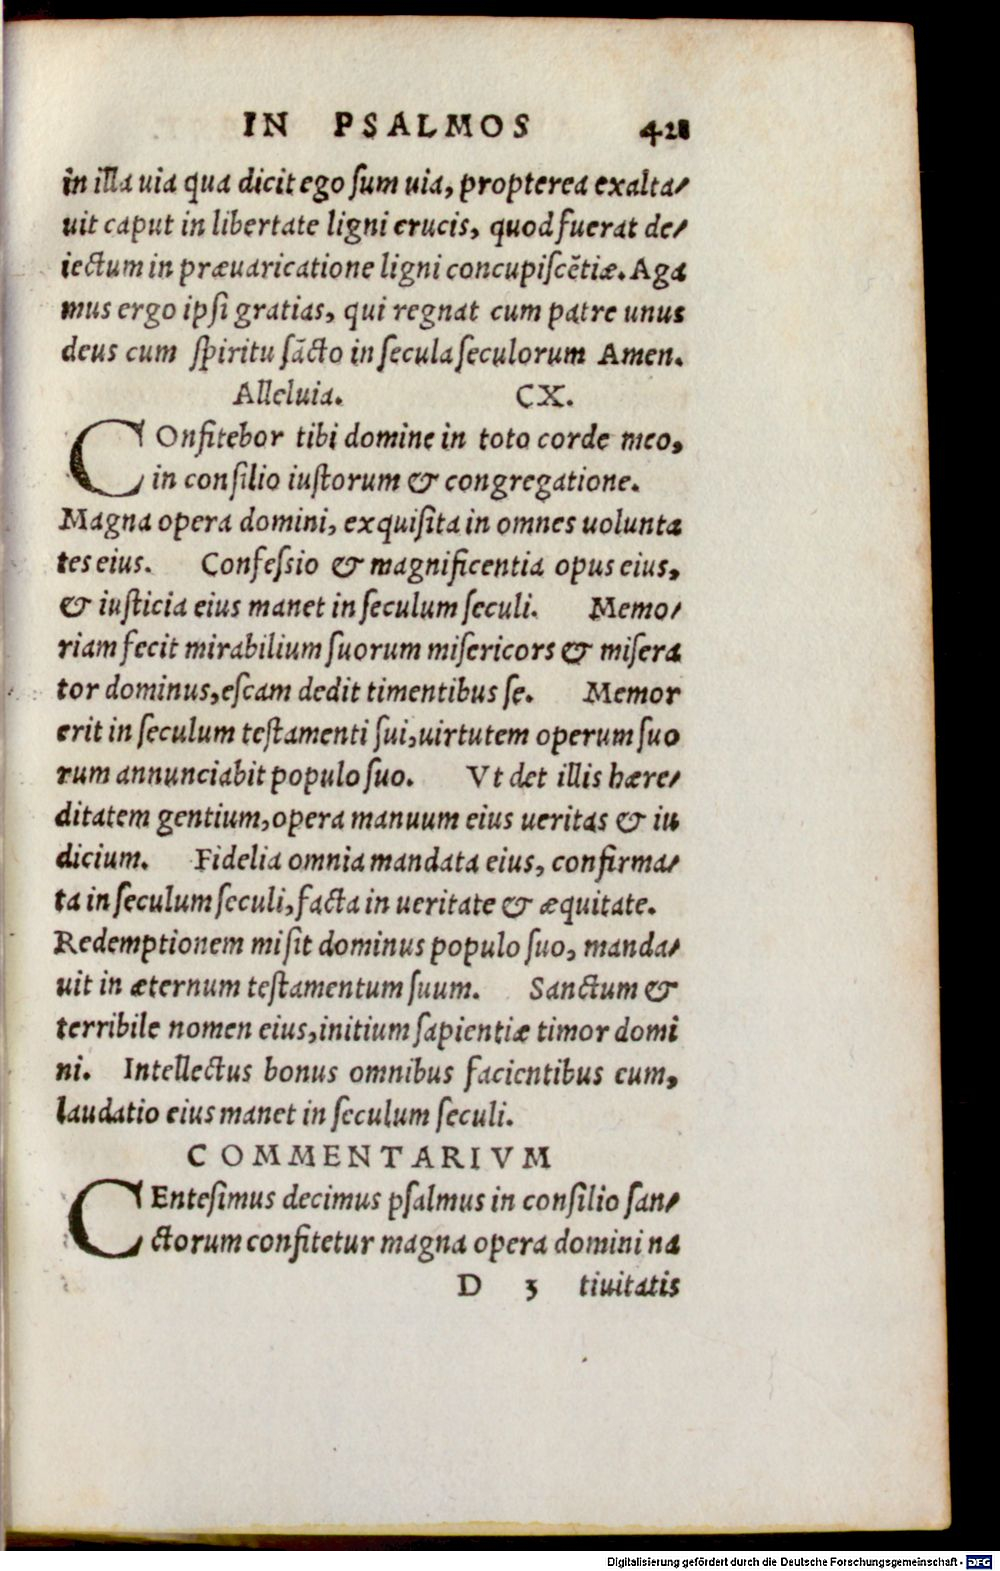 IN PSALMOS 428
in illa uia qua dicit ego sum uia, propterea exalta/
uit caput in libertate ligni crucis, quod fuerat de/
iectum in præuaricatione ligni concupiscẽtiæ. Aga
mus ergo ipsi gratias, qui regnat cum patre unus
deus cum spiritu sãcto in secula seculorum Amen.
Alleluia. CX.
COnfitebor tibi domine in toto corde meo,
in consilio iustorum & congregatione.
Magna opera domini, exquisita in omnes uolunta
tes eius. Confessio & magnificentia opus eius,
& iusticia eius manet in seculum seculi. Memo/
riam fecit mirabilium suorum misericors & misera
tor dominus, escam dedit timentibus se. Memor
erit in seculum testamenti sui, uirtutem operum suo
rum annunciabit populo suo. Vt det illis hære/
ditatem gentium, opera manuum eius ueritas & iu
dicium. Fidelia omnia mandata eius, confirma/
ta in seculum seculi, facta in ueritate & æquitate.
Redemptionem misit dominus populo suo, manda/
uit in æternum testamentum suum. Sanctum &
terribile nomen eius, initium sapientiæ timor domi
ni. Intellectus bonus omnibus facientibus eum,
laudatio eius manet in seculum seculi.
COMMENTARIVM
CEntesimus decimus psalmus in consilio san/
ctorum confitetur magna opera domini na
D 3 tiuitatis
Digitalisierung gefördert durch die Deutsche Forschungsgemeinschaft - DFG